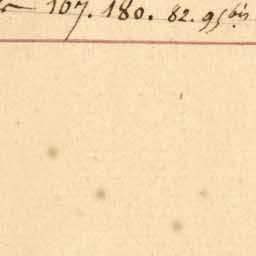 167. 180. 82. 95 bis